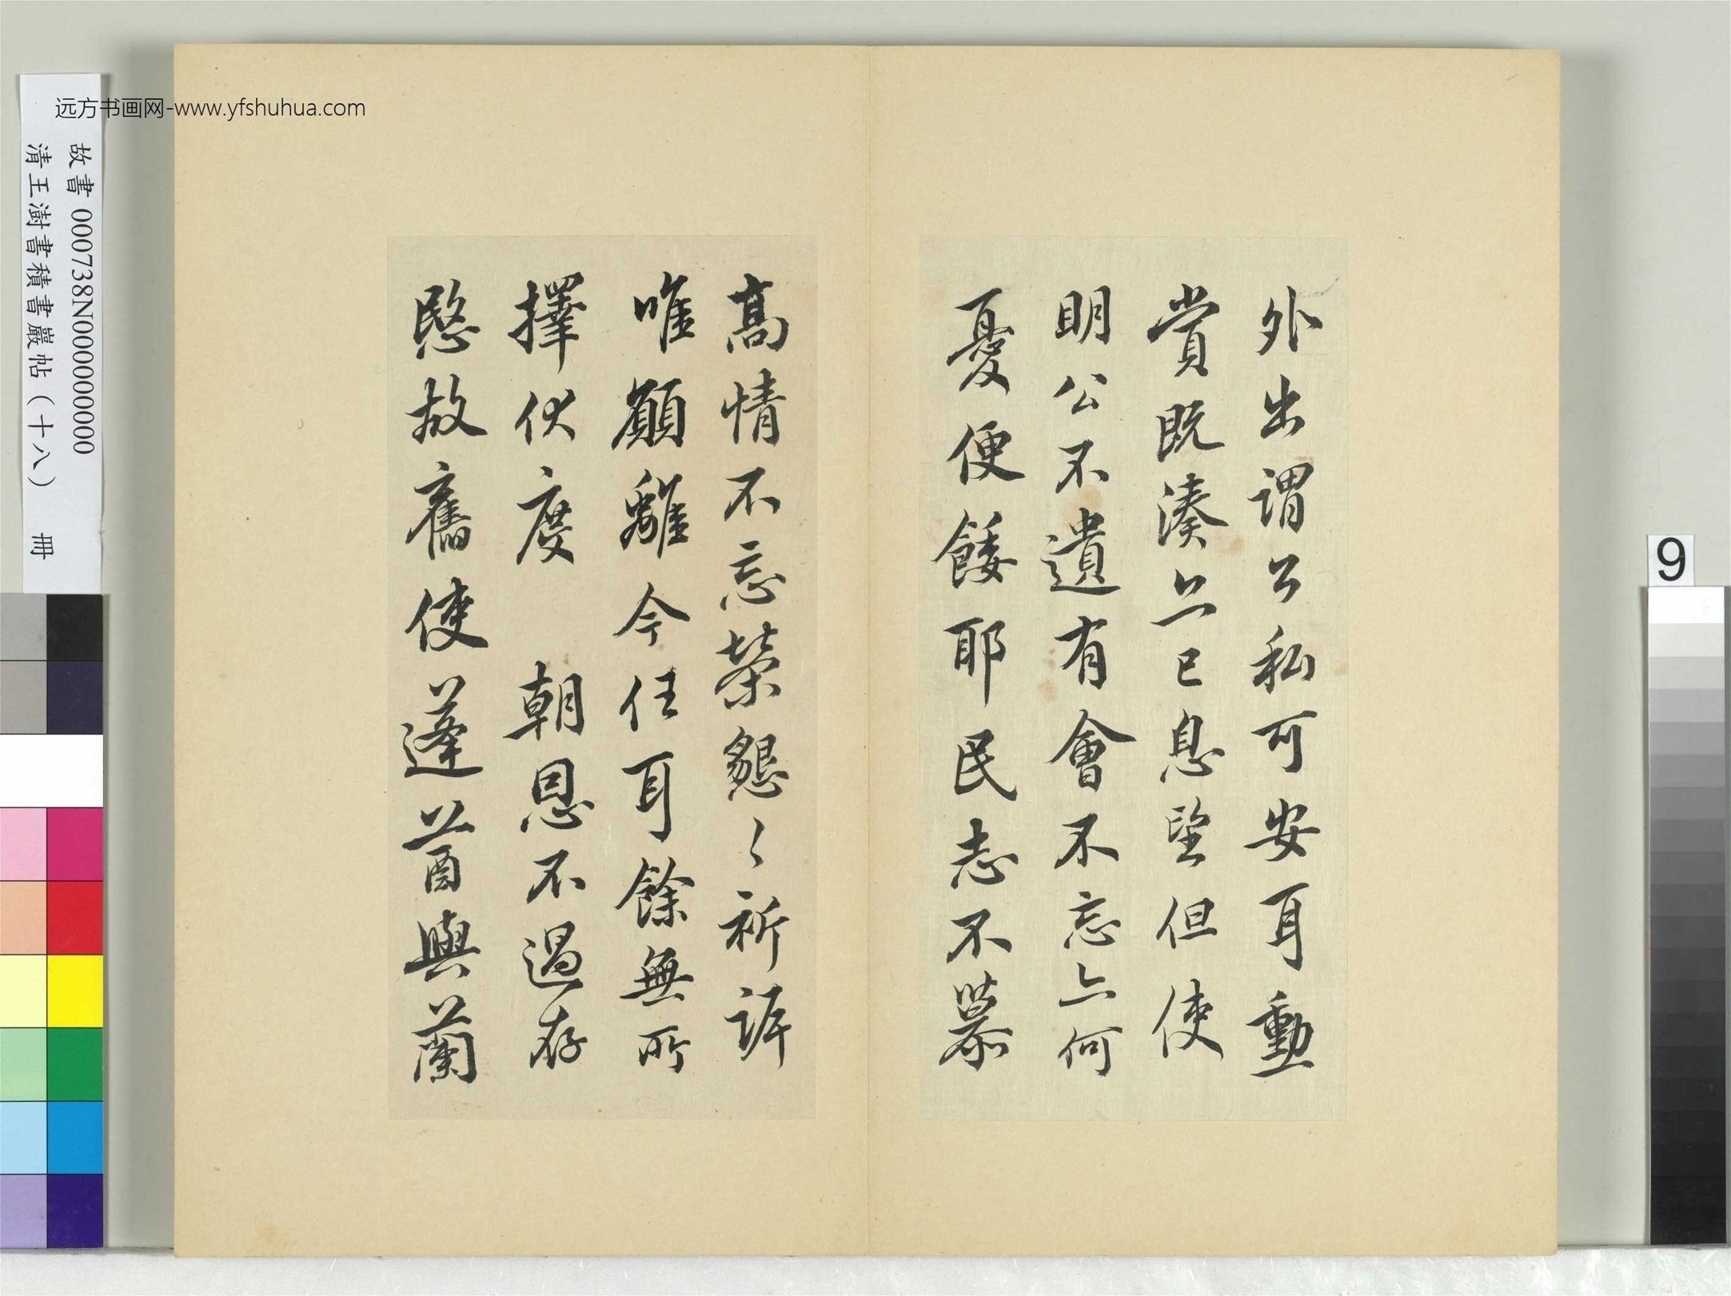 远方书画网-www.yfshuhua.com
故書 000738N000000000
清王澍書積書巖帖（十八） 冊
9
外出謂公私可安耳動
賞既湊亦已息望但使
明公不遺有會不忘亦何
憂便餧耶民志不慕
高情不忘榮懇〻祈訴
唯願離今任耳餘無所
擇伏度 朝恩不過存
愍故舊使蓬䓊與蘭